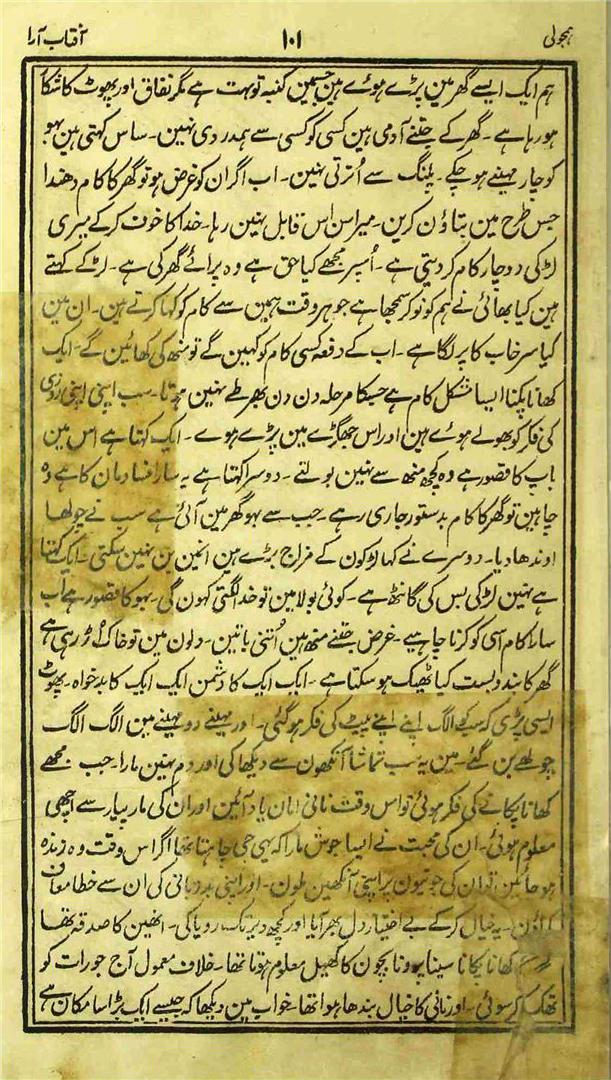 ہمجولی ۱۰۱ آفتاب آرا
ہم ایک ایسے گھر مین پڑے ہوئے ہین جسمین کنبہ تو بہت ہے مگر نفاق اور پھوٹ کا شکا
ہو رہا ہے۔ گھر کے جتنے آدمی ہین کسی کو کسی سے ہمدردی نہین۔ ساس کہتی ہین بہو
کو چار مہینے ہو چکے۔ پلنگ سے اُترتی نہین۔ اب اگر ان کو غرض ہو تو گھر کا کام دھندا
جس طرح مین بتاؤن کرین۔ میرا سن اس قابل نہین رہا۔ خدا کا خوف کر کے میری
لڑکی دو چار کام کر دیتی ہے۔ اُسپر مجھے کیا حق ہے وہ پرائے گھر کی ہے۔ لڑکے کہتے
ہین کیا بھائی نے ہم کو نوکر سمجھا ہے جو ہر وقت ہمین سے کام کو کہا کرتے ہین۔ ان مین
کیا سرخاب کا پر لگا ہے۔ اب کے دفعہ کسی کام کو کہین گے تو منھ کی کھائین گے۔ ایک
کھانا پکنا ایسا مشکل کام ہے جسکا مرحلہ دن دن بھر طے نہین ہوتا۔ سب اپنی اپنی روزی
کی فکر کو بھولے ہوئے ہین اور اس جھگڑے مین پڑے ہوے۔ ایک کہتا ہے اس مین
باپ کا قصور ہے وہ کچھ منھ سے نہین بولتے۔ دوسرا کہتا ہے یہ سارا فساد مان کا ہے وہ
چاہین تو گھر کا کام بدستور جاری رہے۔ جب سے بہو گھر مین آئی ہے سب نے چولھا
اوندھا دیا۔ دوسرے نے کہا لڑکون کے مزاج بڑے ہین انمین بن نہین سکتی۔ ایک کہتا
ہے نہین لڑکی بس کی گانٹھ ہے۔ کوئی بولا مین تو خدا لگتی کہون گی۔ بہو کا قصور ہے اب
سارا کام اسی کو کرنا چاہیے۔ غرض جتنے منھ ہین اُتنی باتین۔ دلون مین تو خاک اُڑ رہی ہے
گھر کا بندوبست کیا ٹھیک ہو سکتا ہے۔ ایک ایک کا دشمن ایک ایک کا بدخواہ۔ پھوٹ
ایسی پڑی کہ سب کو الگ اپنے اپنے پیٹ کی فکر ہو گئی۔ اور مہینے دو مہینے مین الگ الگ
چولھے بن گئے۔ مین یہ سب تماشا آنکھون سے دیکھا کی اور دم نہین مارا۔ جب مجھے
کھانا پکانے کی فکر ہوئی تو اس وقت نانی امان یاد آئین اور ان کی مار پیار سے اچھی
معلوم ہوئی۔ ان کی محبت نے ایسا جوش مارا کہ یہی جی چاہتا تھا اگر اس وقت وہ زندہ
ہو جائین تو ان کی جوتیون پر اپنی آنکھین ملون۔ اور اپنی بدزبانی کی ان سے خطا معاف
کراؤن۔ یہ خیال کر کے بے اختیار دل بھر آیا اور کچھ دیر تک رویا کی۔ انھین کا صدقہ تھا
کھانا پکانا سینا پرونا بچون کا کھیل معلوم ہوتا تھا۔ خلاف معمول آج جو رات کو
تھک کر سوئی۔ اور نانی کا خیال بندھا ہوا تھا۔ خواب مین دیکھا کہ جیسے ایک بڑا سا مکان ہے